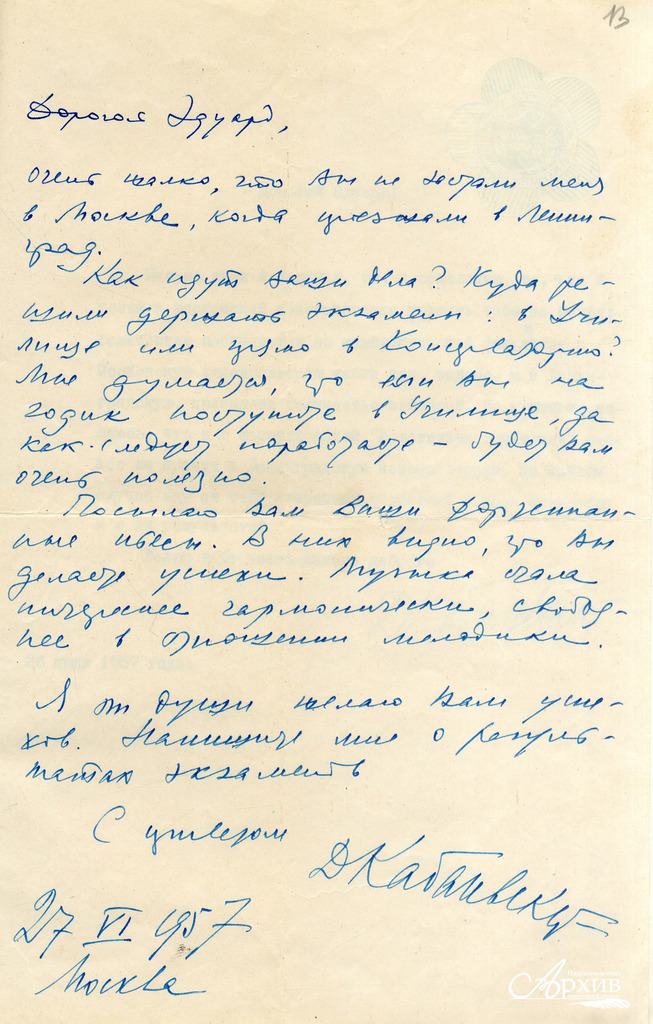 13
Дорогой Эдуард,
очень жалко, что Вы не застали меня
в Москве, когда приезжали в Ленин-
град.
Как идут ваши дела? Куда ре-
шили держать экзамены: в Учи-
лище или прямо в Консерваторию?
Мне думается, что если Вы на
годик поступите в Училище, да
как следует поработаете – будет Вам
очень полезно.
Посылаю Вам Ваши фортепиан-
ные пьесы. В них видно, что Вы
делаете успехи. Музыка стала
интереснее гармонически, свобод-
нее в отношении мелодики.
Я от души желаю Вам успе-
хов. Напишите мне о резуль-
татах экзаменов
С приветом
ДКабалевский
27 VI 1957
Москва
Архив